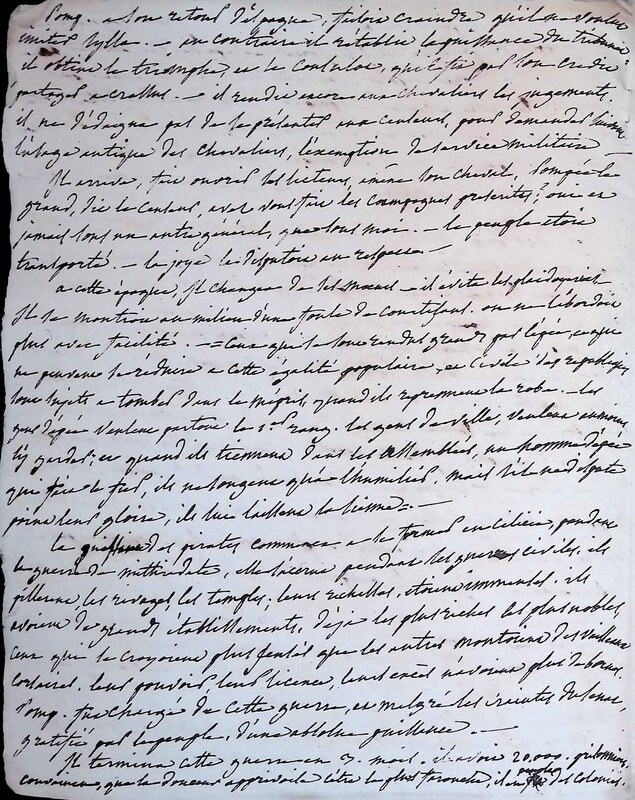 Pomp. a son retour d'espagne, faisoit craindre qu'il ne voulut
imiter Sylla. — au contraire il rétablit la puissance des tribuns.
il obtint le triomphe, et le consulat, qu'il fit par son crédit
partager a crassus. — il rendit encor aux chevaliers les jugements.
il ne dédaigna pas de se présenter aux censeurs, pour demander suivant
l'usage antique des chevaliers, l'exemption du service militaire —
Il arrive, fait ouvrir ses licteurs, amène son cheval, Pompée le
grand, dit le censeur, avez vous fait les campagnes prescrites? oui et
jamais sous un autre général, que sous moi. — le peuple étoit
transporté. — la joye le disputoit au respect —
a cette époque, Il changea de ses mœurs — il évite les plaidoyers —
Il se montroit au milieu d'une foule de courtisans. on ne l'abordoit
plus avec facilité. — = Ceux qui se sont rendus grands par l'épée, et que
ne peuvent se réduire a cette égalité populaire, et civile des républiques,
sont sujets a tomber dans le mépris, quand ils reprennent la robe. — les
gens d'épée veulent partout le 1er rang. les gens de ville, veulent au moins
l'y garder; et quand ils tiennent dans les assemblées, un homme d'épée
qui fait le fier, ils ne songent qu'a l'humilier, mais s'il ne dispute
point leur gloire, ils lui laissent la sienne = . —
La puissance des pirates commença a se former en cilicie, pendant
la guerre de mithridate, elle s'accrut pendant les guerres civiles. ils
pillerent, les rivages, les temples; leurs richesses, étoient immenses. ils
avoient de grands établissements, déja les plus riches les plus nobles,
ceux qui se croyoient plus sensés que les autres montoient des vaisseaux
corsaires. leur pouvoir, leur licence, leurs excès n'avoient plus de bornes.
Pomp. fut chargé de cette guerre, et malgré les craintes du sénat,
gratifié par le peuple, d'une absolue puissance. —
Il termina cette guerre en 3. mois. il avoit 20,000. prisonniers,
convaincu, que la douceur apprivoise les plus farouches, il en des colonies.